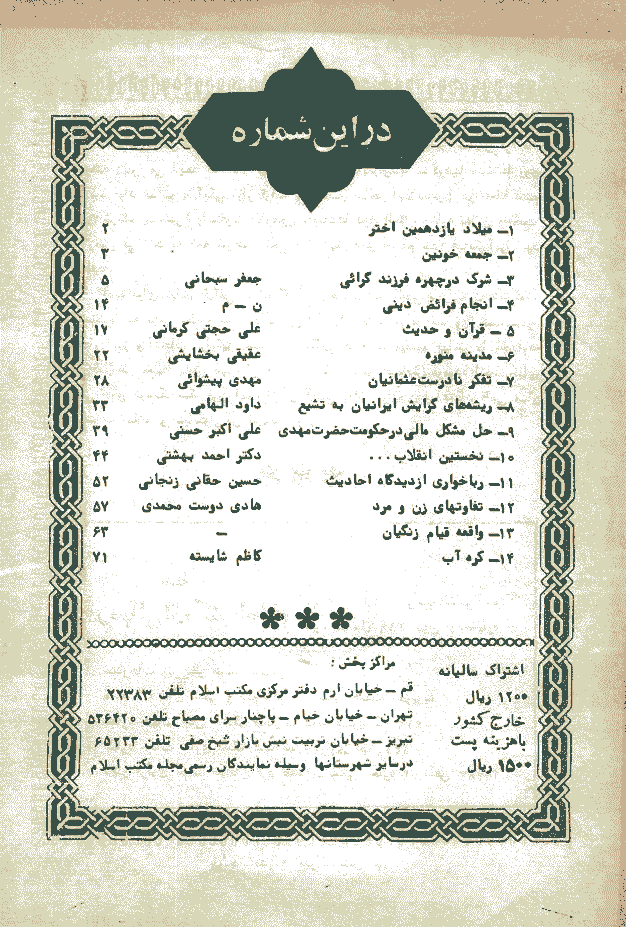 در این شماره
۱ـ میلاد یازدهمین اختر ۲
۲ـ جمعه خونین ۳
۳ـ شرک درچهره فرزند گرائی جعفر سبحانی ۵
۴ـ انجام فرائض دینی ن ـ م ۱۴
۵ ـ قرآن و حدیث علی حجتی کرمانی ۱۷
۶ـ مدینه منوره عقیقی بخشایشی ۲۲
۷ـ تفکر نادرست عثمانیان مهدی پیشوائی ۲۸
۸ـ ریشه‌های گرایش ایرانیان به تشیع داود الهامی ۳۳
۹ـ حل مشکل مالی در حکومت حضرت مهدی علی اکبر حسنی ۳۹
۱۰ـ نخستین انقلاب... دکتر احمد بهشتی ۴۴
۱۱ـ رباخواری ازدیدگاه احادیث حسین حقانی زنجانی ۵۲
۱۲ـ تفاوتهای زن و مرد هادی دوست محمدی ۵۷
۱۳ـ واقعه قیام زنگیان ـ ۶۳
۱۴ـ کره آب کاظم شایسته ۷۱
اشتراک سالیانه
۱۲۰۰ ریال
خارج کشور
باهزینه پست
۱۵۰۰ ریال
مراکز پخش :
قم ـ خیابان ارم دفتر مرکزی مکتب اسلام تلفن ۲۲۳۸۳
تهران ـ خیابان خیام ـ پاچنار سرای مصباح تلفن ۵۳۶۴۲۰
تبریز ـ خیابان تربیت نبش بازار شیخ صفی تلفن ۶۵۲۳۳
درسایر شهرستانها وسیله نمایندگان رسمی مجله مکتب اسلام